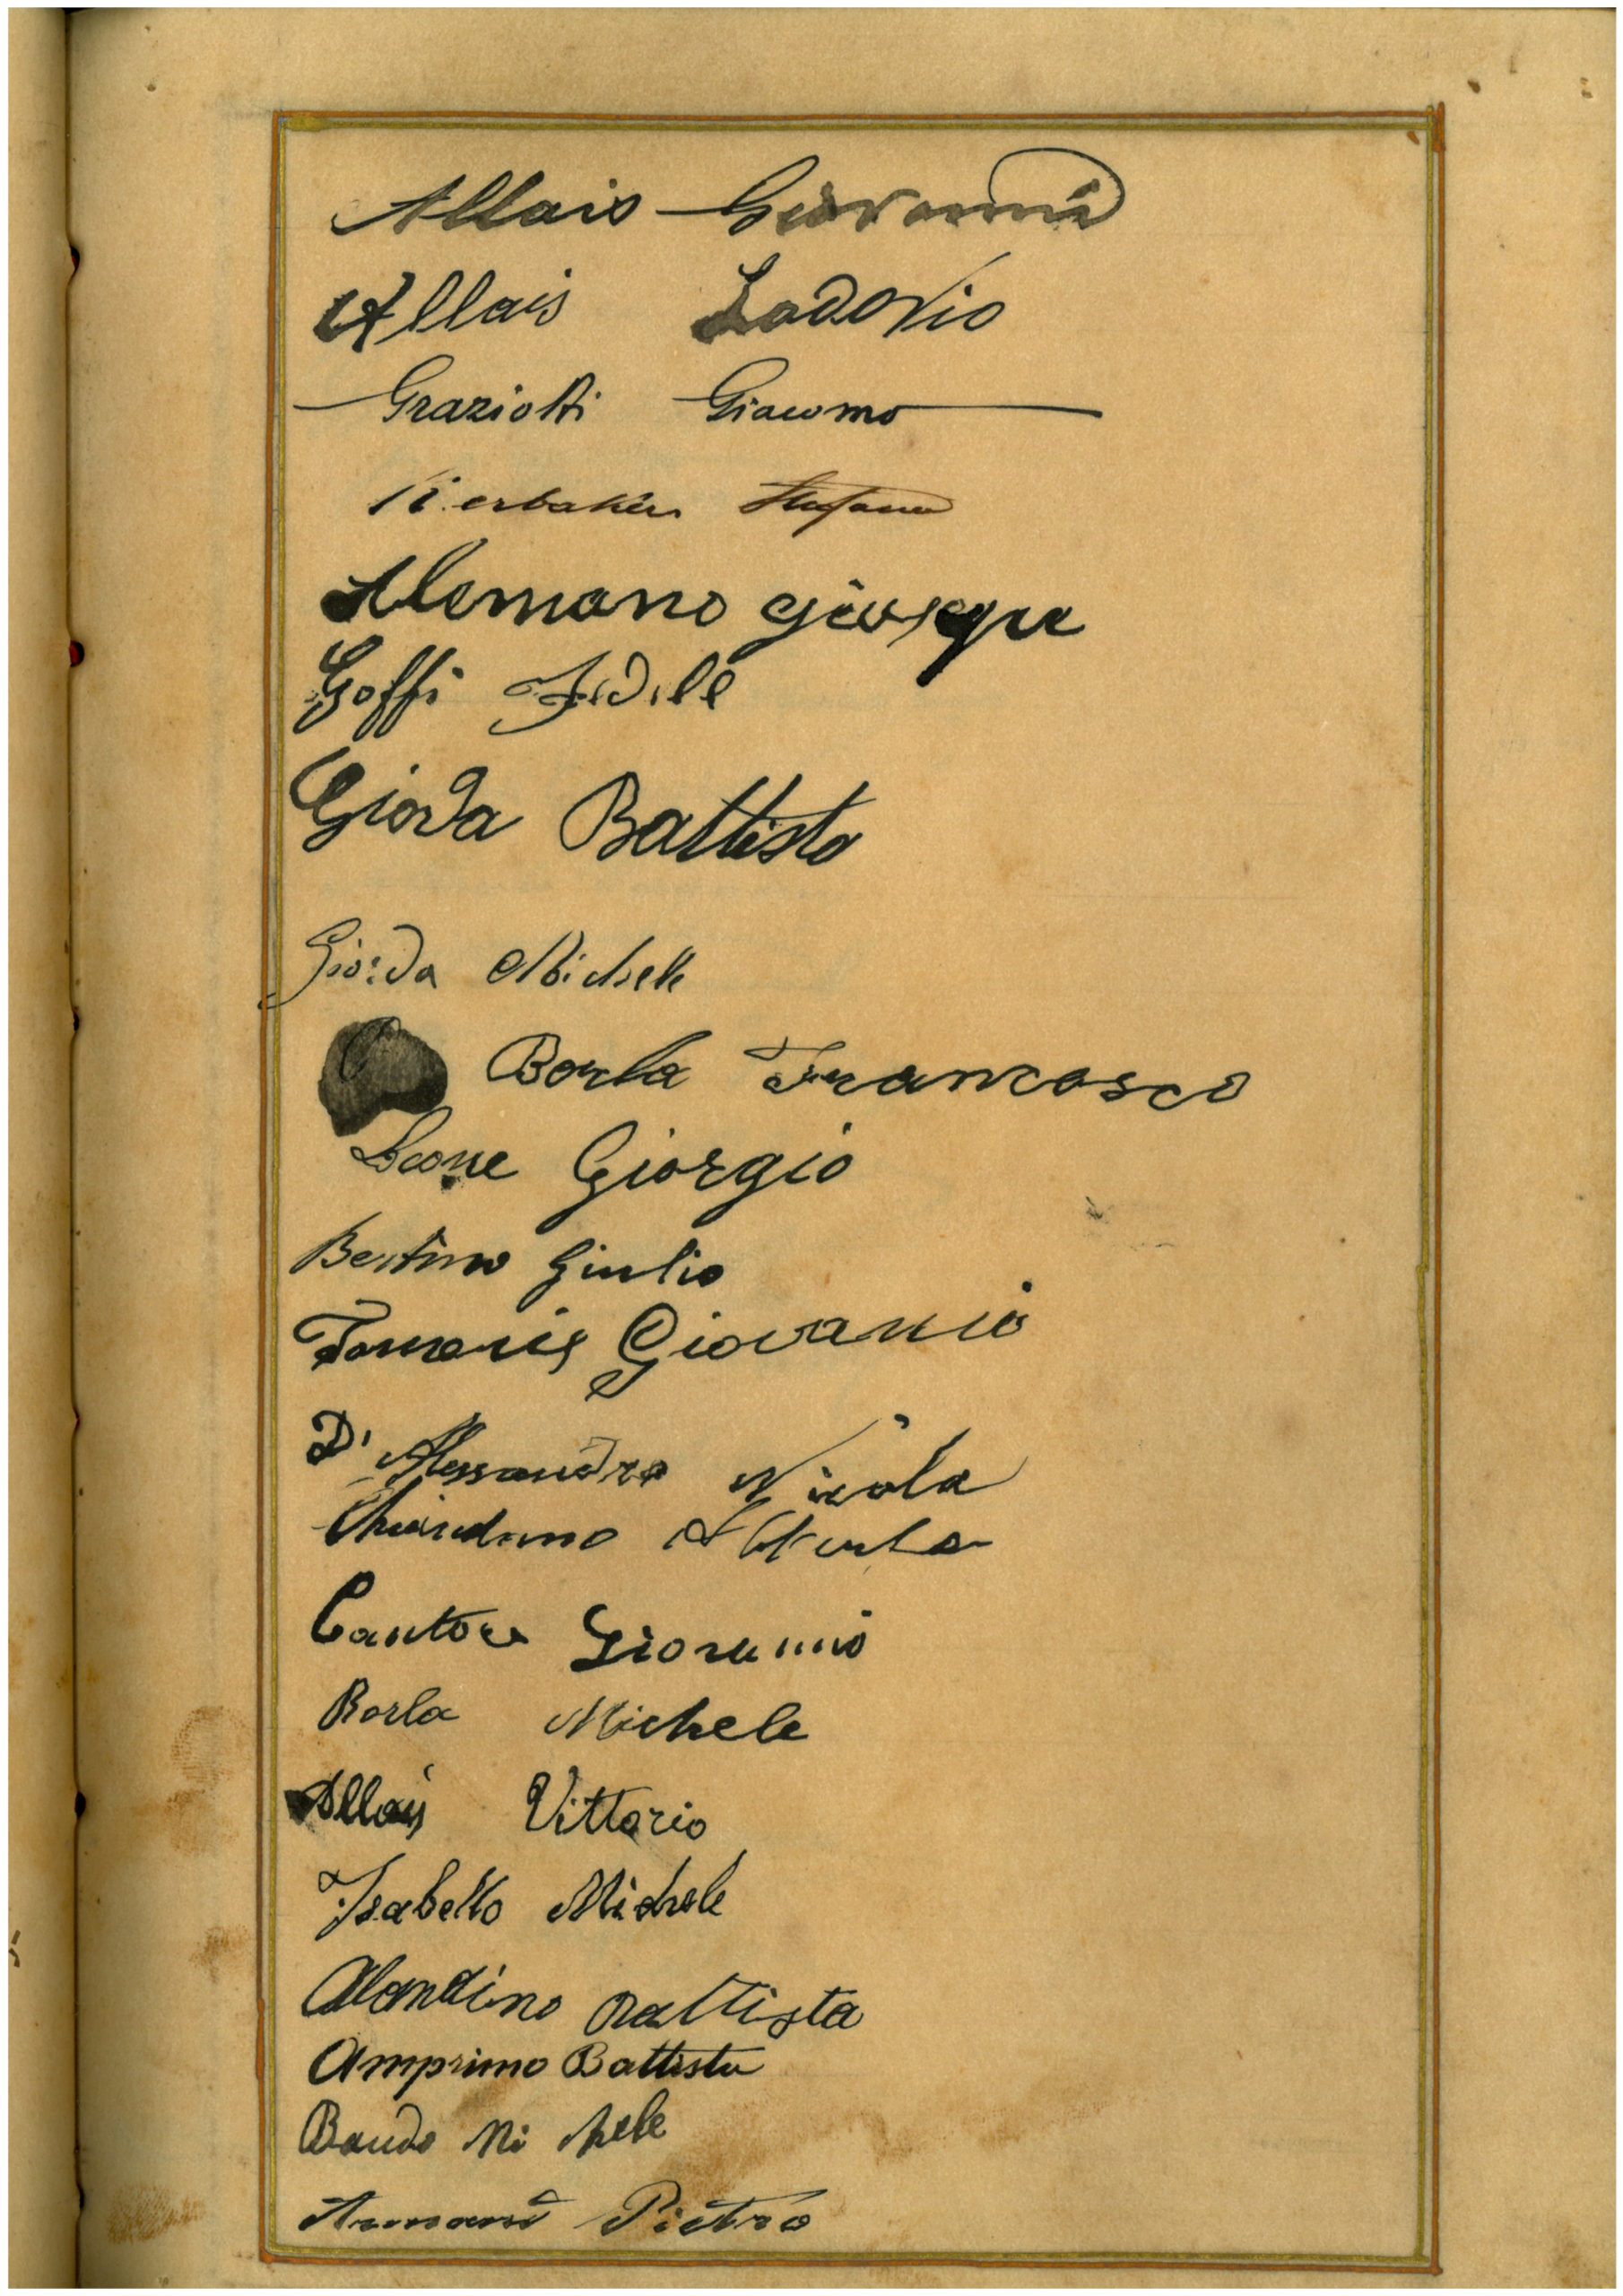 Allais Giovanni
Allais Lodovio
Graziotti Giacomo
Kerbaker Stefano
Alemano Giuseppe
Goffi Fidele
Giorda Battista
Giorda Michele
Borla Francosco
Leone Giorgio
Bertino Giulio
Giovanni
D'Alessandro Nicola
Cantore Giovanni
Borla Michele
Allais Vittorio
Isabello Michele
Battista
Amprimo Battista
Baudo Michele
Pietro